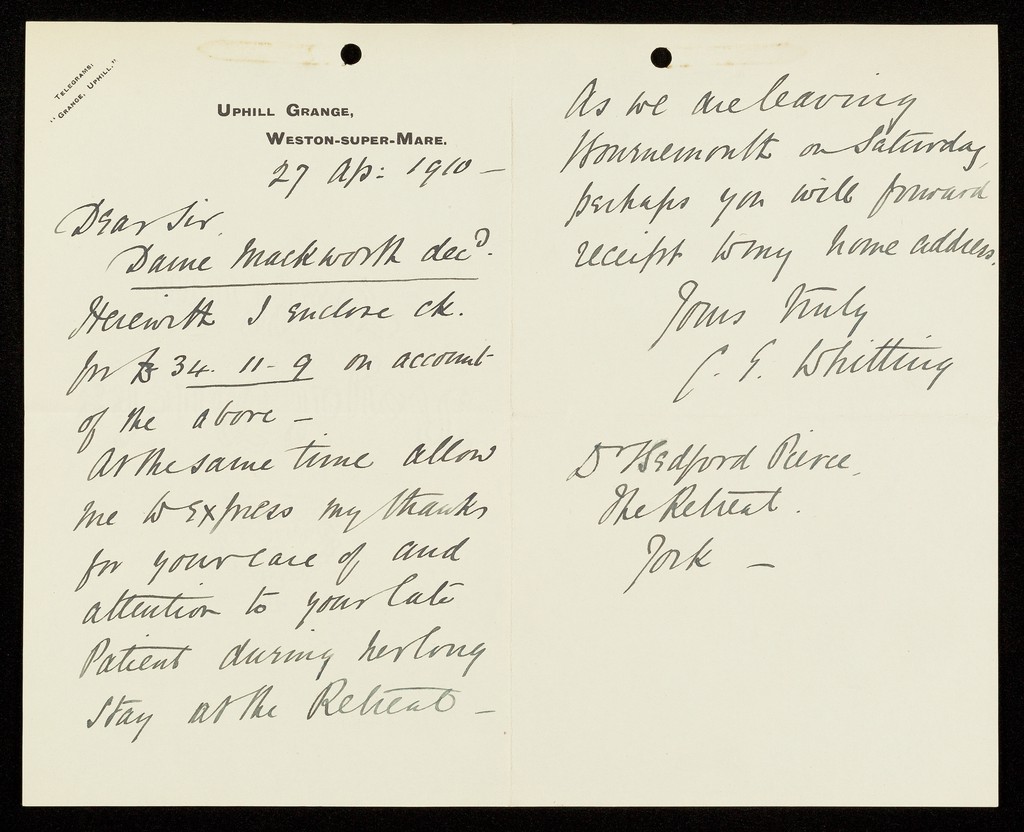 TELEGRAMS:
"GRANGE, UPHILL."
UPHILL GRANGE,
WESTON-SUPER-MARE.
27 Ap: 1910 –
Dear Sir,
Dame Mackworth decd.
Herewith I enclose ck.
for £34. 11 - 9 on account
of the above –
At the same time allow
me to express my thanks
for your care of and
attention to your late
Patient during her long
stay at the Retreat –
As we are leaving
Bournemouth on Saturday,
perhaps you will forward
receipt to my home address.
Yours truly
C. E. Whitting
Dr Bedford Pierce,
The Retreat.
York –